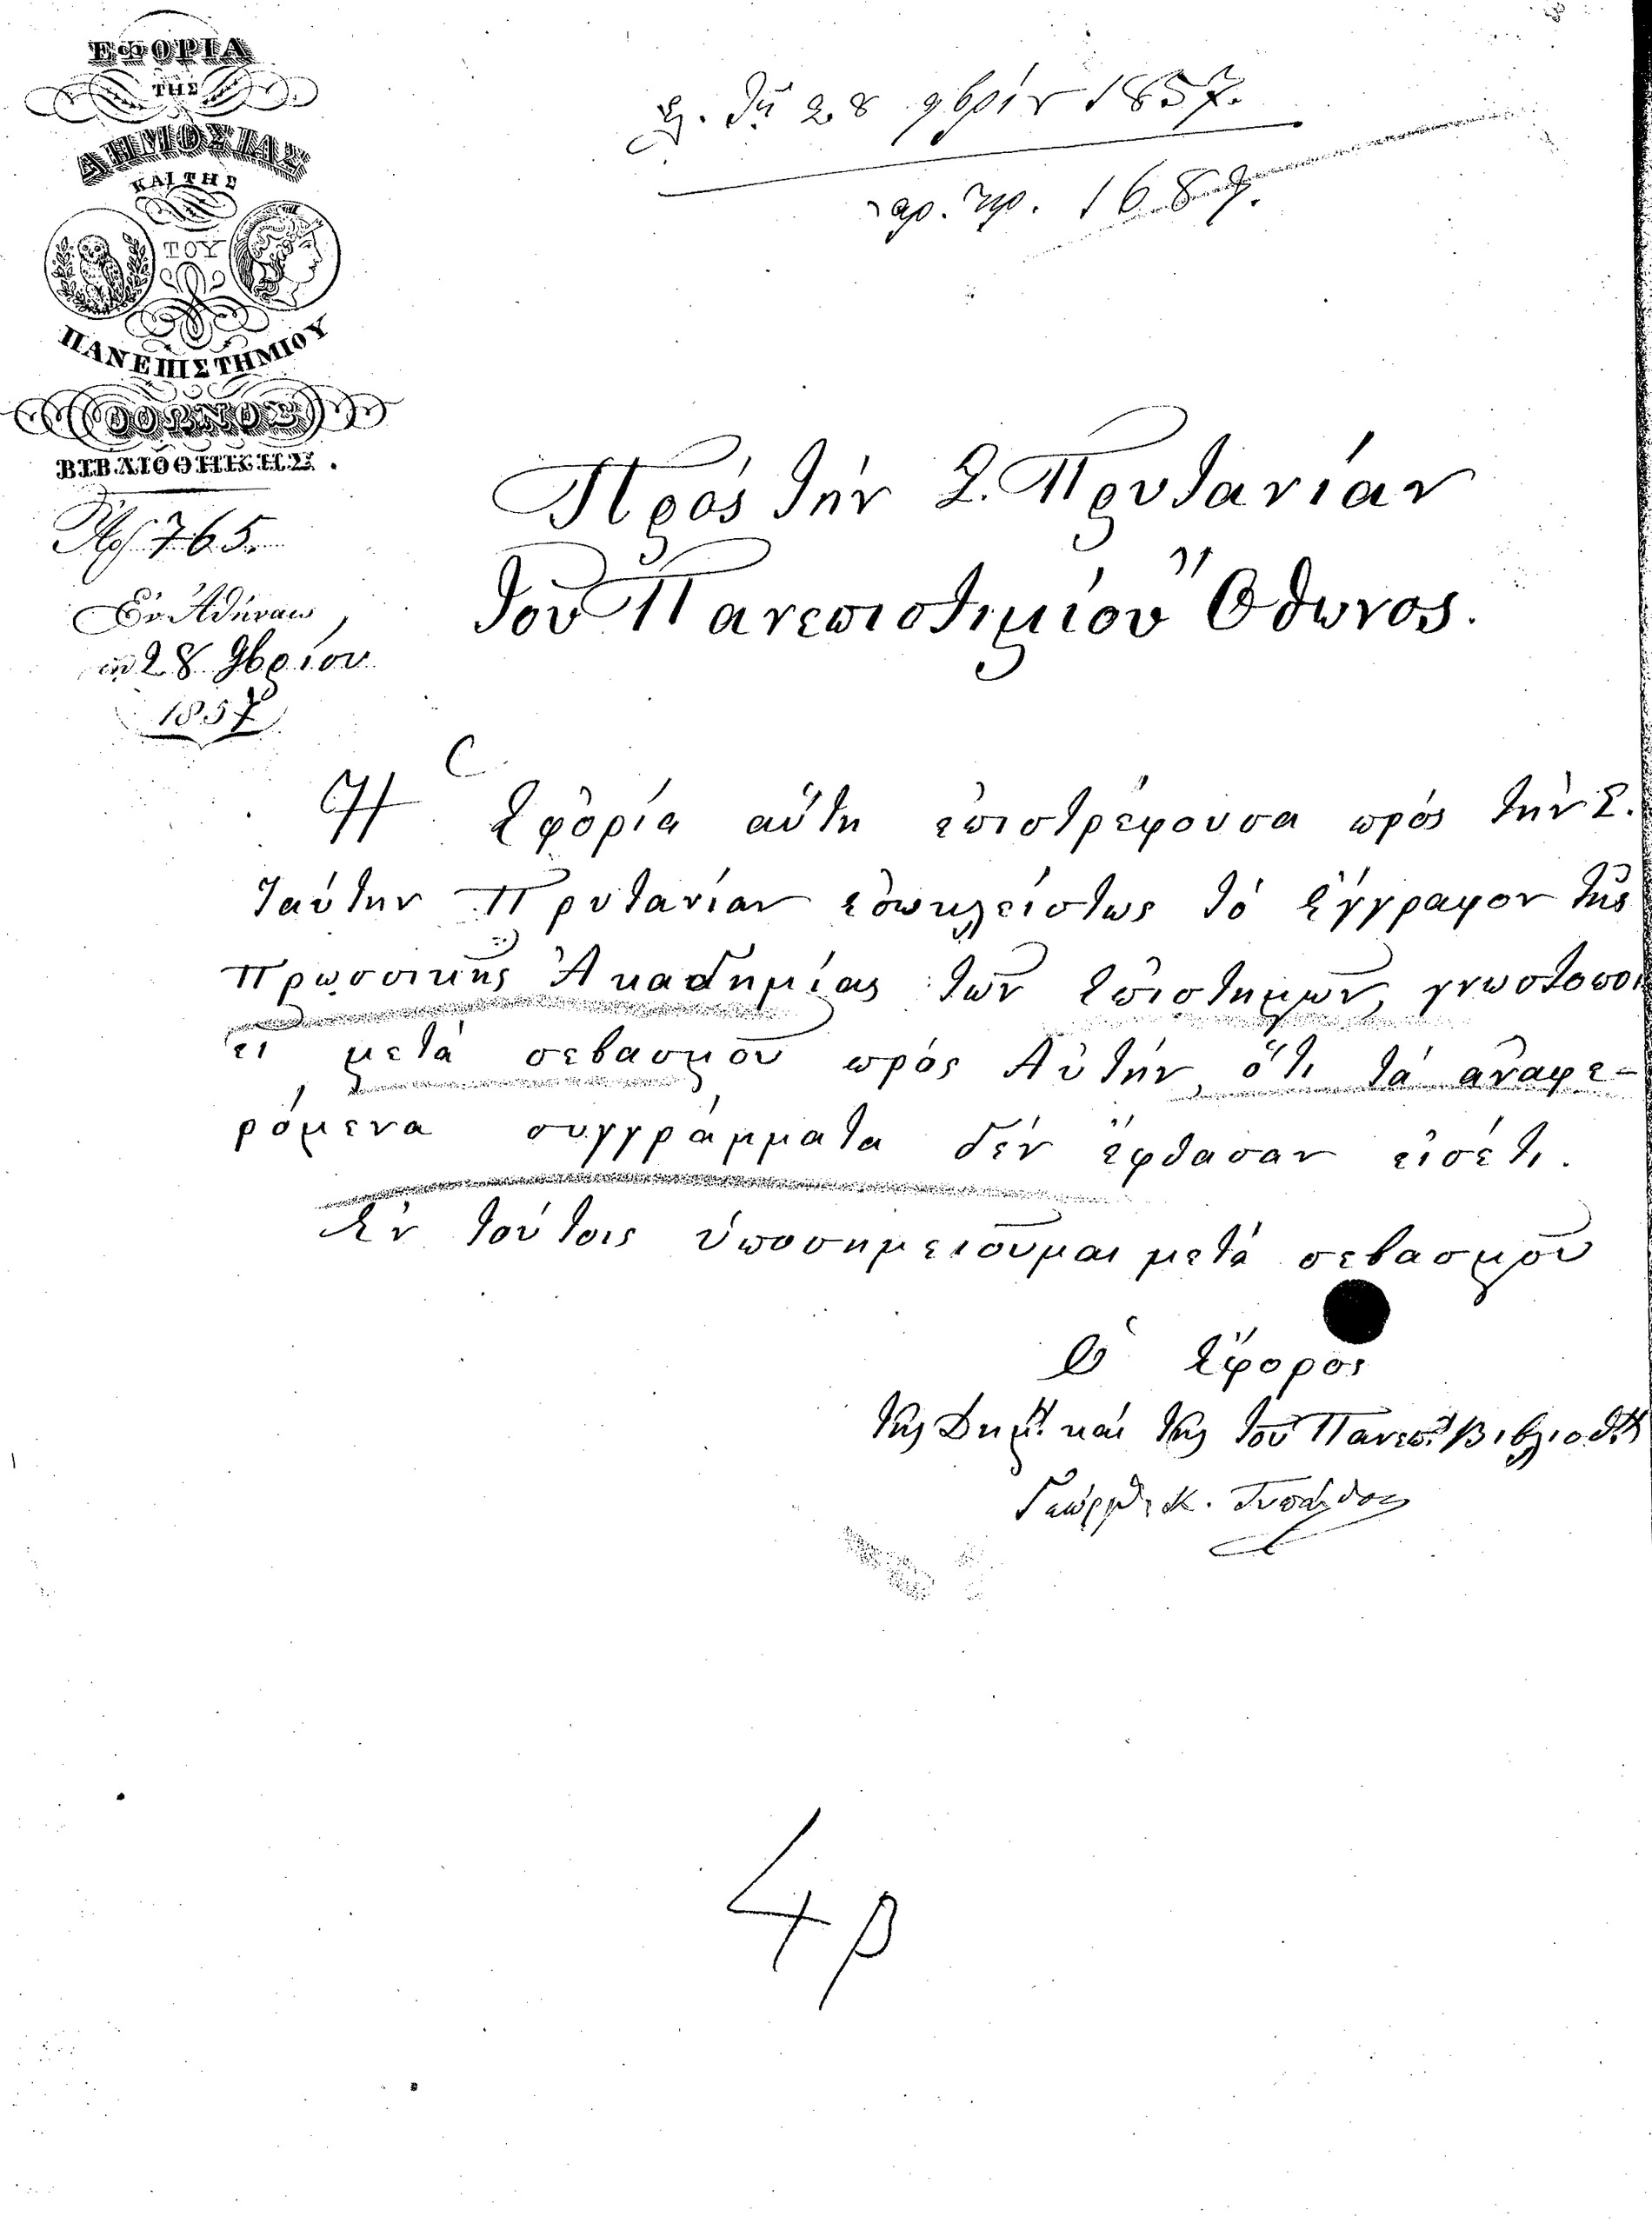 ΕΦΟΡΙΑ
ΤΗΣ
ΔΗΜΟΣΙΑΣ
ΚΑΙ ΤΗΣ
ΤΟΥ
ΠΑΝΕΠΙΣΤΗΜΙΟΥ
ΟΘΩΝΟΣ
ΒΙΒΛΙΟΘΗΚΗΣ.
765.
Ἐν Ἀθήναις
τῇ 28 9βρίου
1857
τῇ 28 9βρίου 1857.
αρ. πρ. 1687.
Πρός τήν Σ. Πρυτανίαν
τοῦ Πανεπιστημίου Ὄθωνος.
Ἡ Ἐφορία αὕτη ἐπιστρέφουσα πρός τήν Σ.
ταύτην Πρυτανίαν ἐσωκλείστως τό ἔγγραφον τῆς
Πρωσσικῆς Ἀκαδημίας τῶν Ἐπιστημῶν, γνωστοποι
εῖ μετά σεβασμοῦ πρός Αὐτήν, ὅτι τά ἀναφε-
ρόμενα συγγράμματα δέν ἔφθασαν εἰσέτι.
Ἐν τούτοις ὑποσημειοῦμαι μετά σεβασμοῦ
Ὁ Ἔφορος
τῆς Δημ. καί τῆς τοῦ Πανεπ. Βιβλιοθ.
Γεώργιος Κ. Τυπάλδος
4 β